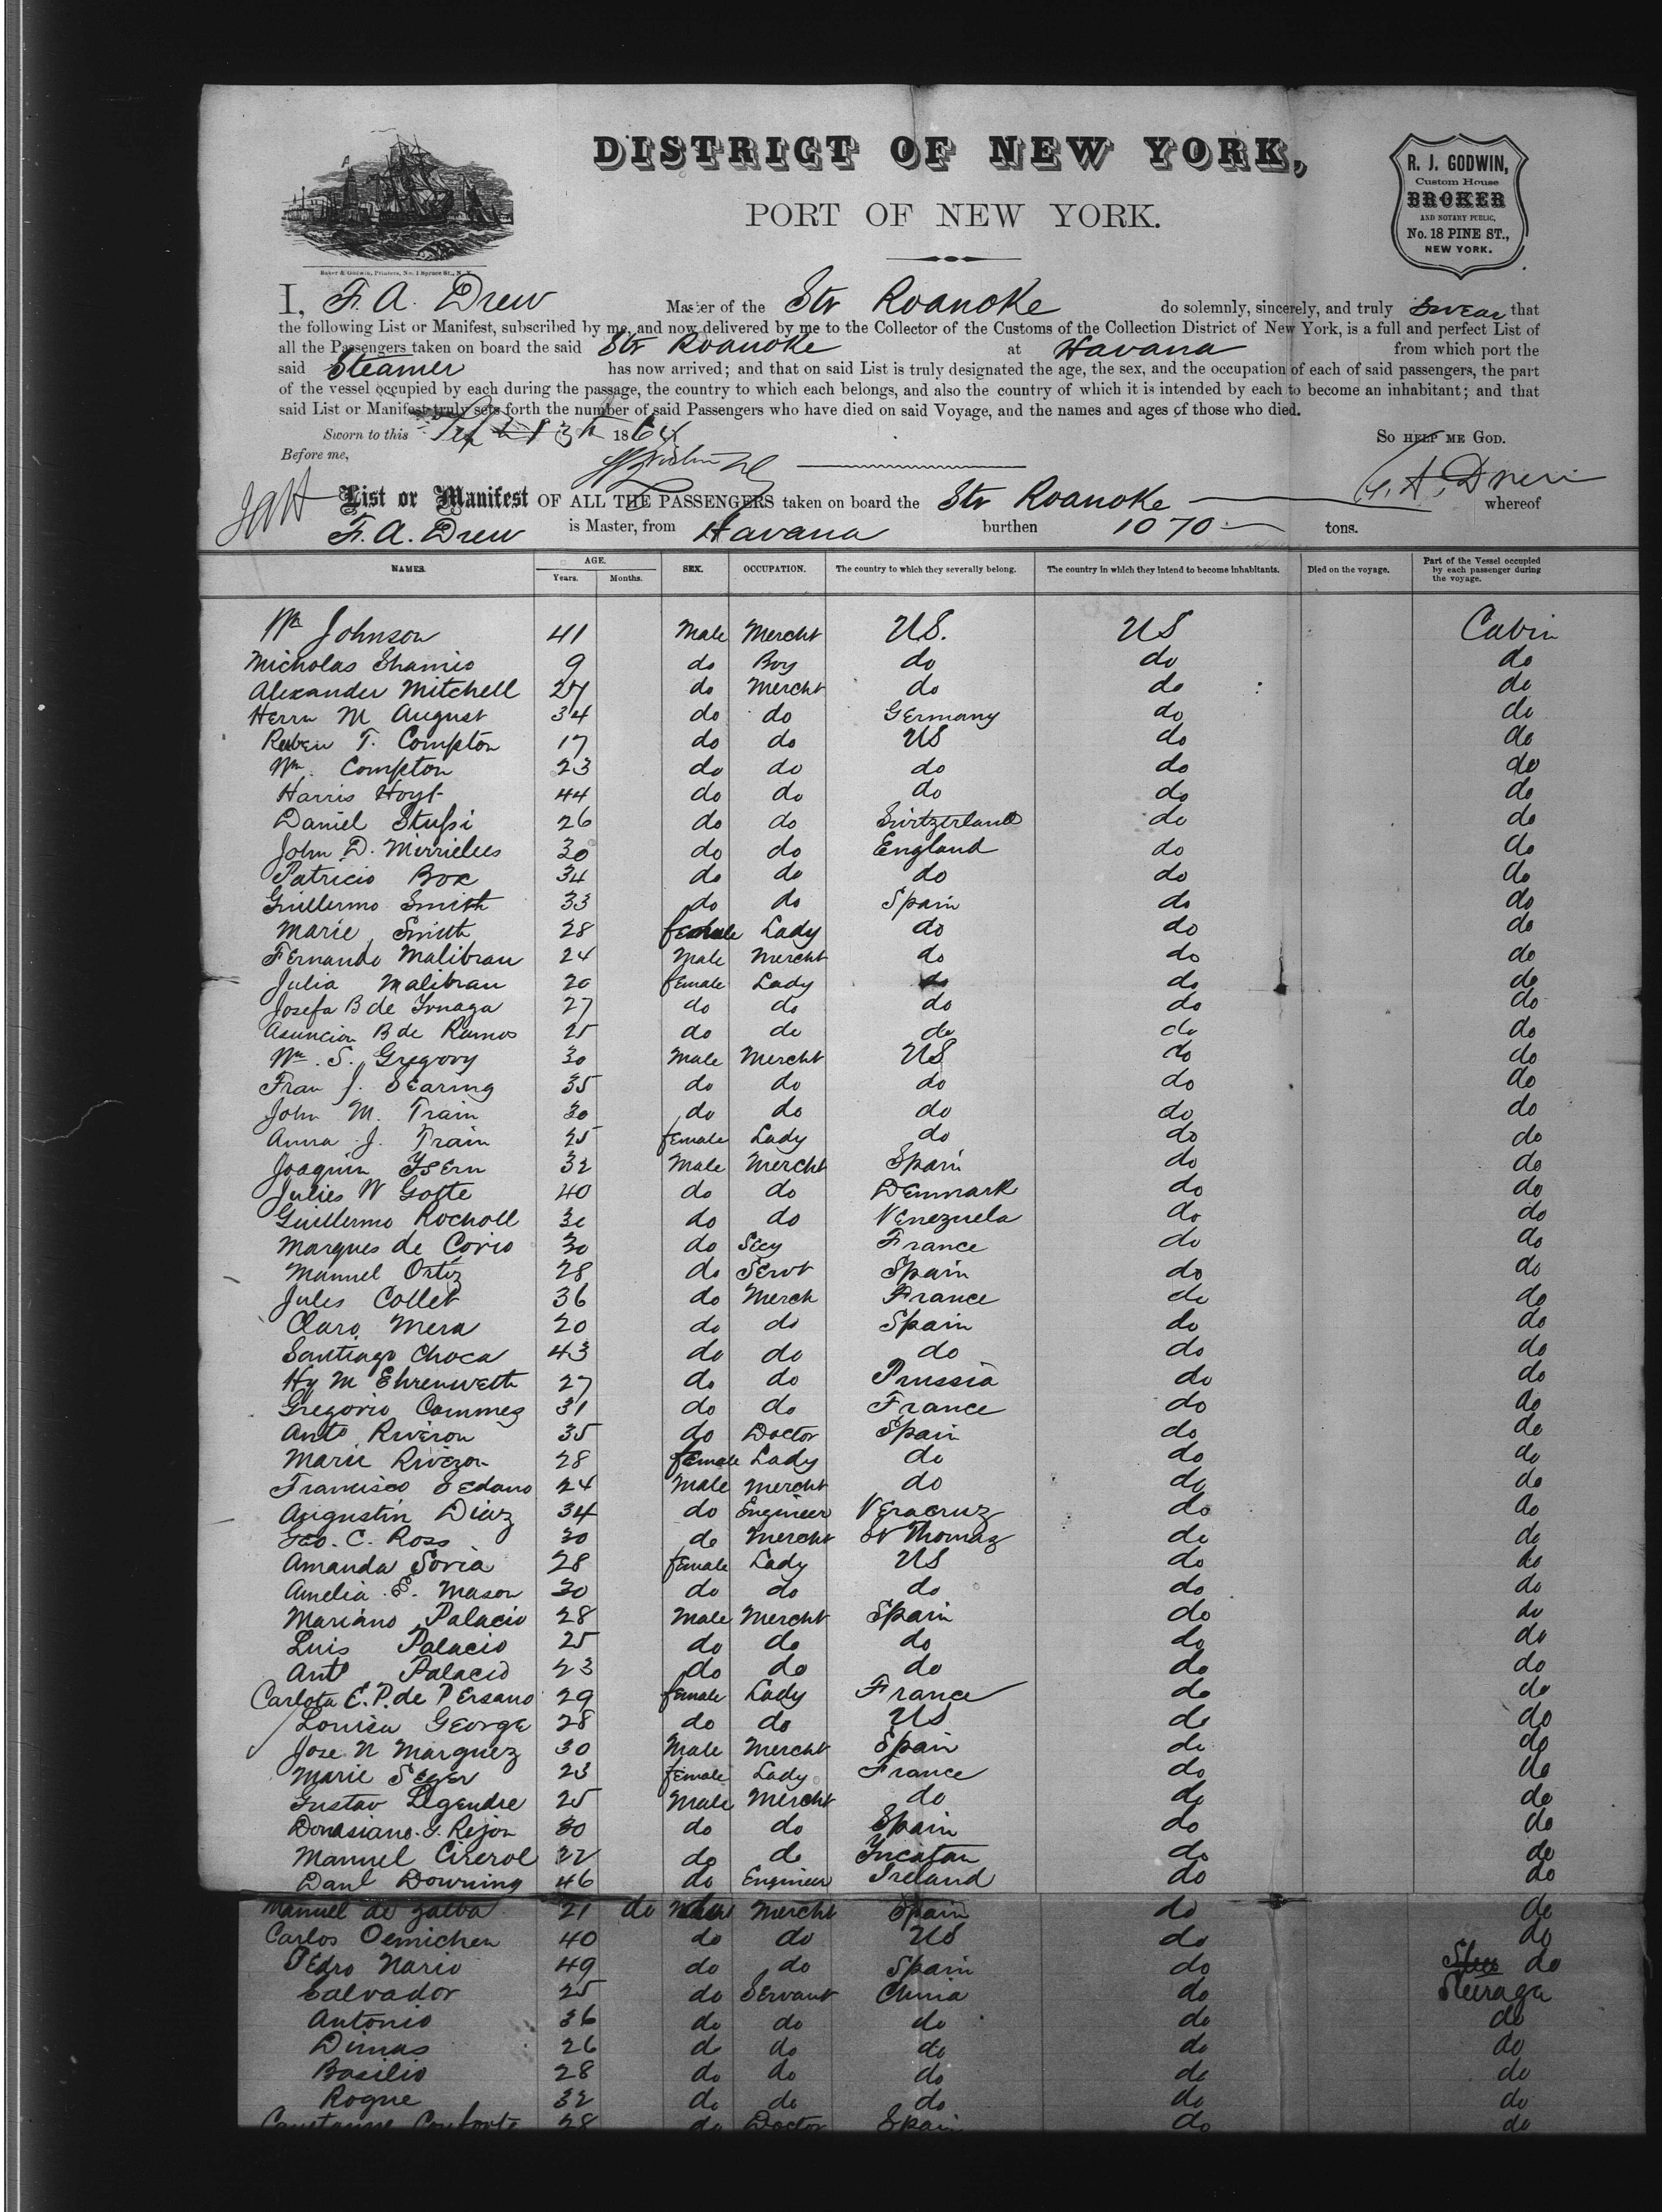 DISTRICT OF NEW YORK,
PORT OF NEW YORK.
R. J. GODWIN,
Custom House
BROKER
AND NOTARY PUBLIC,
No. 18 PINE ST.,
NEW YORK.
Baker & Godwin, Printers, No. 1 Spruce St., N.Y.
I, F. A. Drew Master of the Str Roanoke do solemnly, sincerely, and truly swear that
the following List or Manifest, subscribed by me, and now delivered by me to the Collector of the Customs of the Collection District of New York, is a full and perfect List of
all the Passengers taken on board the said Str Roanoke at Havana from which port the
said Steamer has now arrived; and that on said List is truly designated the age, the sex, and the occupation of each of said passengers, the part
of the vessel occupied by each during the passage, the country to which each belongs, and also the country of which it is intended by each to become an inhabitant; and that
said List or Manifest truly sets forth the number of said Passengers who have died on said Voyage, and the names and ages of those who died.
Sworn to this 1864 So HELP ME GOD.
Before me,
F. A. Drew
List or Manifest OF ALL THE PASSENGERS taken on board the Str Roanoke whereof
F. A. Drew is Master, from Havana burthen 1070 tons.
NAMES. AGE. Years. Months. SEX. OCCUPATION. The country to which they severally belong. The country in which they intend to become inhabitants. Died on the voyage. Part of the Vessel occupied by each passenger during the voyage.
Wm Johnson 41 Male Mercht US. US Cabin
Micholas Shamio 9 do Boy do do do
Alexander Mitchell 27 do Mercht do do do
Herrn M August 34 do do Germany do do
Reuben T. Compton 17 do do US do do
Wm. Compton 23 do do do do do
Harris Hoyt 44 do do do do do
Daniel Stussi 26 do do Switzerland do do
John D. Mirrielees 30 do do England do do
Patricio Box 34 do do do do do
Guillermo Smith 33 do do Spain do do
Marie Smith 28 female Lady do do do
Fernando Malibran 24 Male Mercht do do do
Julia Malibran 20 female Lady do do do
Josefa B de Yznaga 27 do do do do do
Asuncion B de Ramos 25 do do do do do
Wm. S. Gregory 30 Male Mercht US do do
Fran J. Searing 35 do do do do do
John M. Train 30 do do do do do
Anna J. Train 25 female Lady do do do
Joaquin Ysern 32 Male Mercht Spain do do
Julies W Gotte 40 do do Denmark do do
Guillermo Rocholl 30 do do Venezuela do do
Marques de Corio 30 do Secy France do do
Manuel Ortiz 28 do Servt Spain do do
Jules Collet 36 do Merch France do do
Claro Mera 20 do do Spain do do
Santiago Choca 43 do do do do do
Hy M Ehrenwerth 27 do do Prussia do do
Gregorio Commez 31 do do France do do
Anto Riveron 35 do Doctor Spain do do
Marie Riveron 28 female Lady do do do
Francisco Sedano 24 Male mercht do do do
Augustin Diaz 34 do Engineer Veracruz do do
Geo. C. Ross 30 do Mercht St Thomas do do
Amanda Soria 28 female Lady US do do
Amelia E. Mason 30 do do do do do
Mariano Palacio 28 Male Mercht Spain do do
Luis Palacio 25 do do do do do
Anto Palacio 23 do do do do do
Carlota E. P. de Persano 29 female Lady France do do
Louisa George 28 do do US do do
Jose N Marquez 30 Male Mercht Spain do do
Marie Seger 23 female Lady France do do
Gustav Legendre 25 Male Mercht do do do
Donasiano G. Rejon 30 do do Spain do do
Manuel Cirerol 32 do do Yucatan do do
Danl Downing 46 do Engineer Ireland do do
Manuel de Galba 21 do Mercht Spain do do
Carlos Oemichen 40 do do US do do
Pedro Nario 49 do do Spain do do
Salvador 25 do Servant China do Steirage
Antonio 36 do do do do do
Dimas 26 do do do do do
Basilio 28 do do do do do
Roque 32 do do do do do
28 do Doctor Spain do do